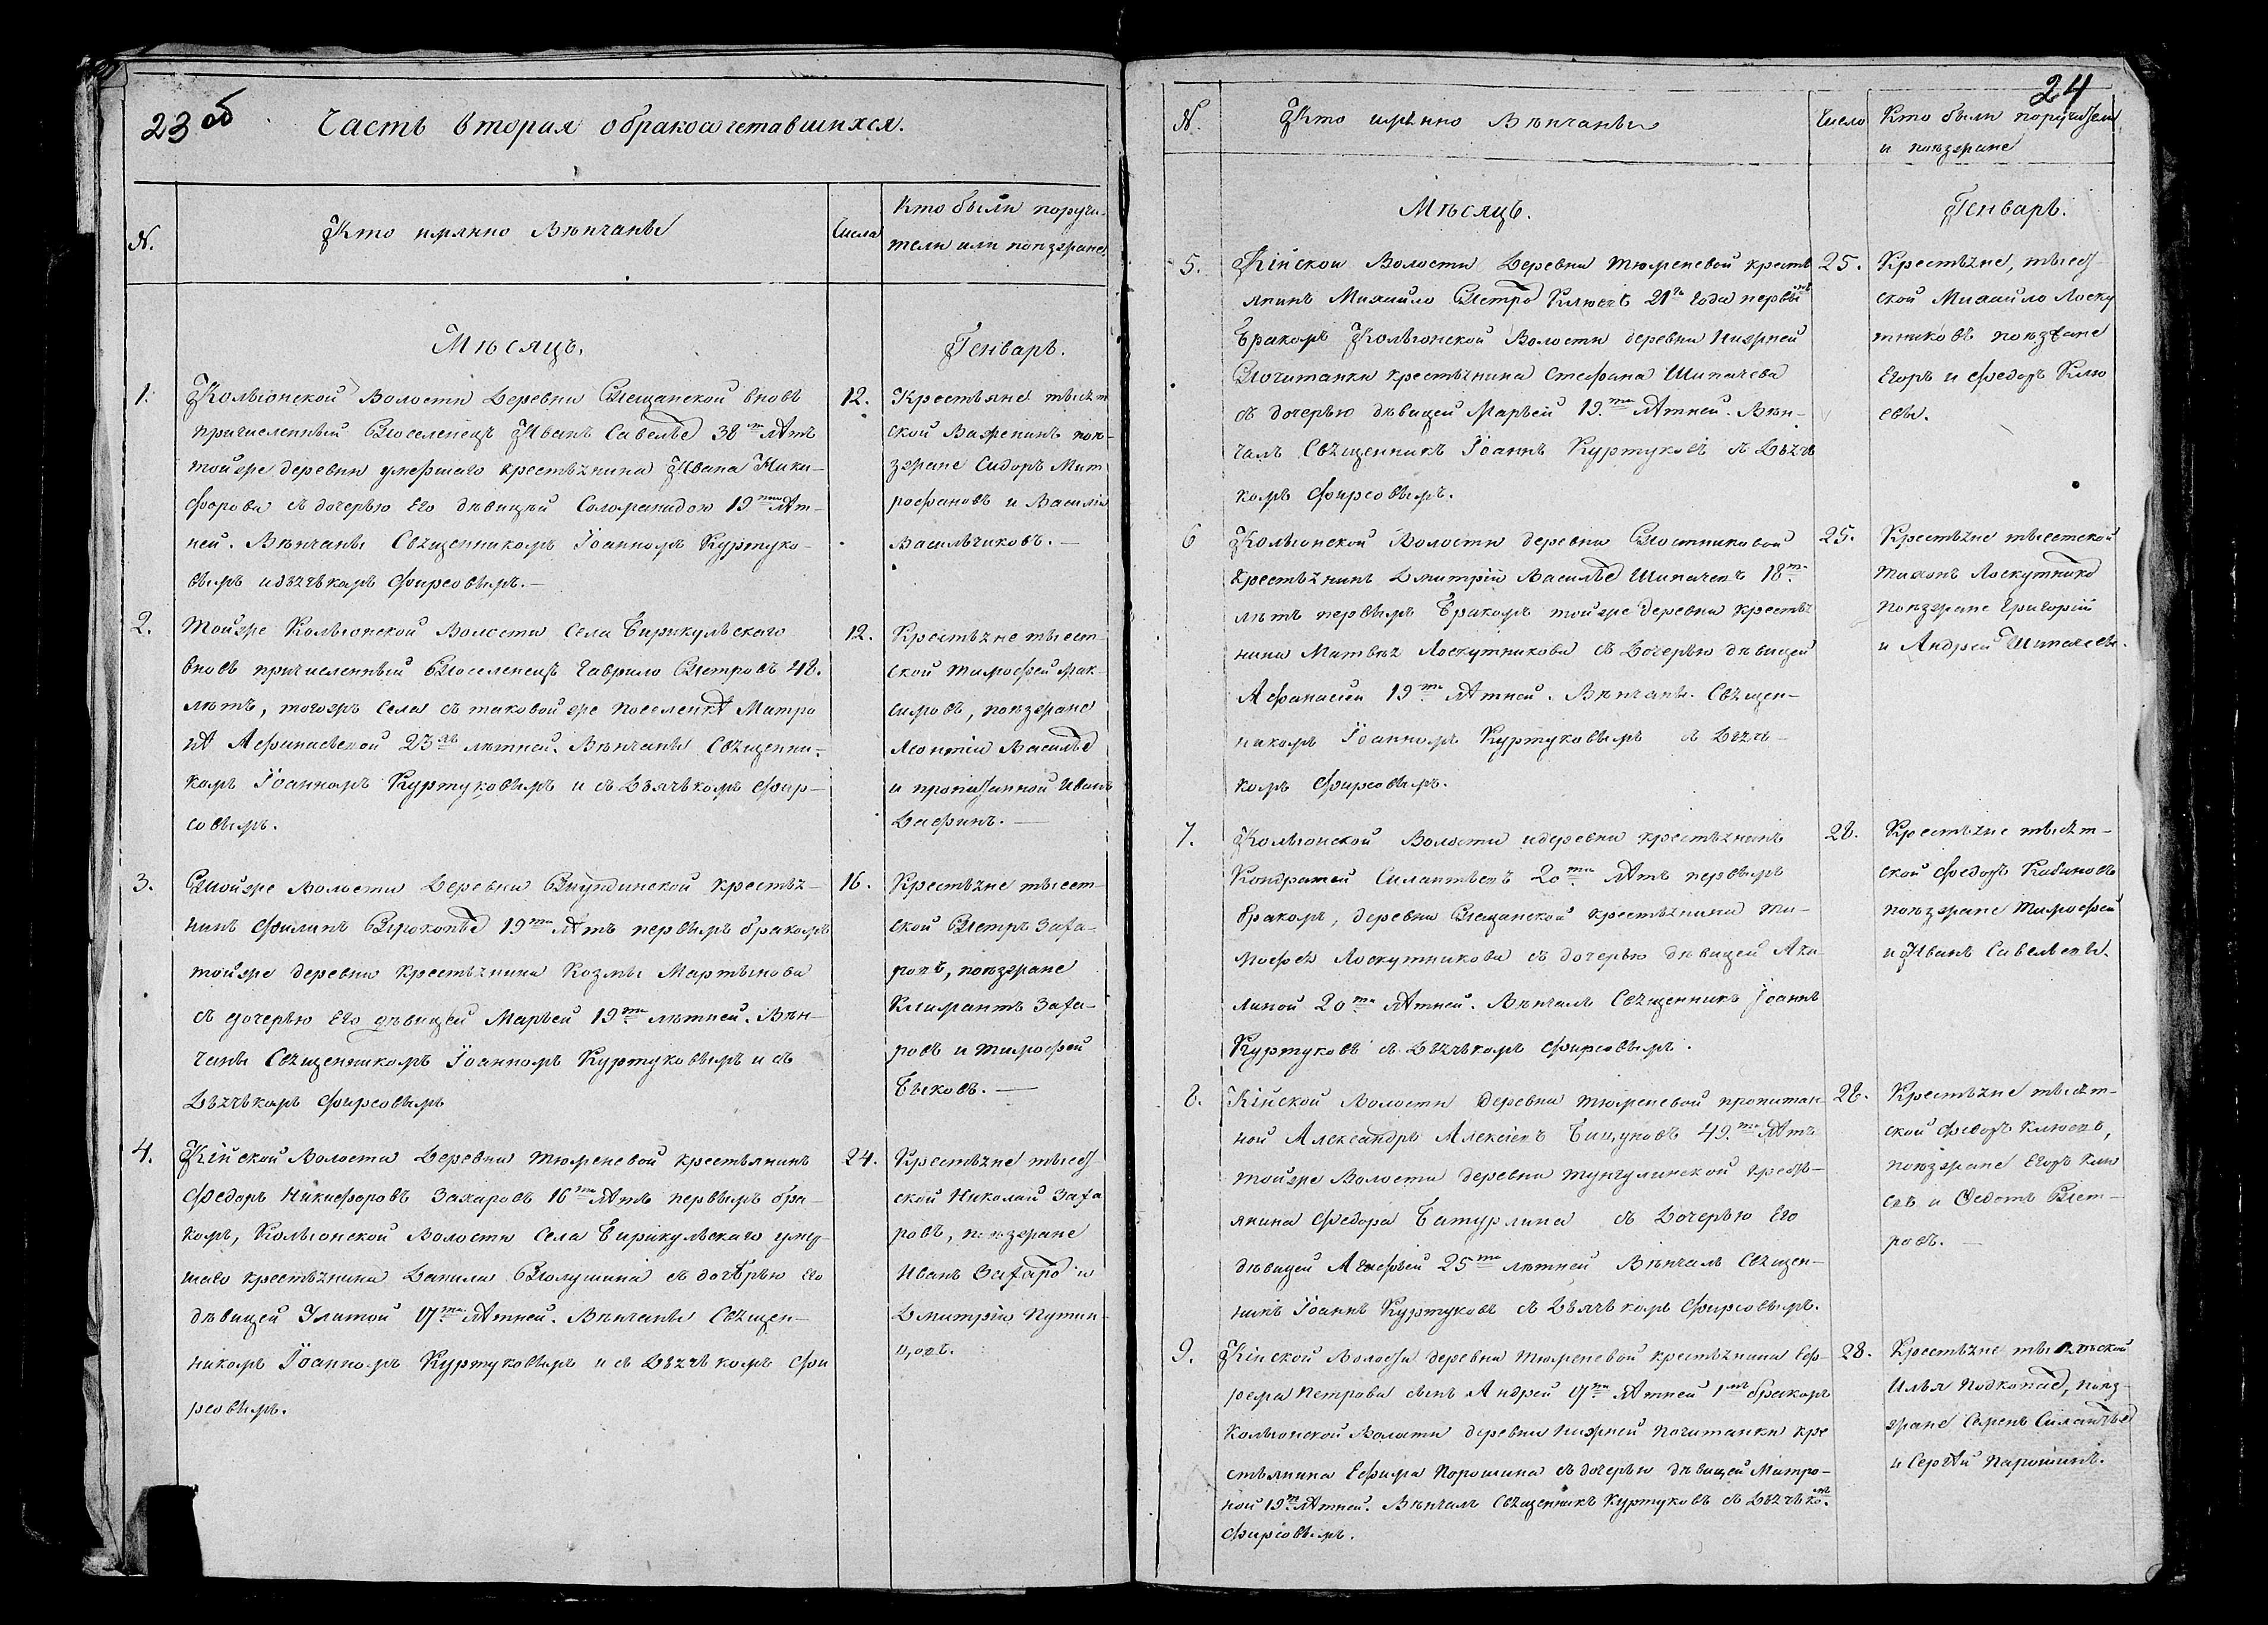 23 об
Часть вторая о бракосочетавшихся.
N.
Кто имянно Вѣнчаны
Числа
Кто были поручи-
тели или поѣзжане.
Мѣсяцъ.
Генварь.
1.
Колыонской Волости Деревни Песчанской вновь
причисленный Поселенецъ Иванъ Савельевъ 38 лѣтъ
той же деревни умершаго крестьянина Ивана Ники-
форова съ дочерью Его дѣвицей Соломанидою 19ти лѣт-
ней. Вѣнчаны Священникомъ Іоанномъ Куртуко-
вымъ и дьячькомъ Фирсовымъ.—
12.
Крестьяне тысѣт
ской Важенинъ поѣ-
зжане Сидоръ Мит
рофановъ и Василій
Васильчиковъ.—
2.
Той же Колыонской Волости Села Бирикульскаго
вновь причисленный Поселенецъ Гаврило Петровъ 48.
лѣтъ, того жъ Села съ таковой же поселенкѣ Матро
нѣ Афанасьевой 23хъ лѣтней. Вѣнчаны Священни-
комъ Іоанномъ Куртуковымъ и съ Дьячькомъ Фир-
совымъ.
12.
Крестьяне тысет-
ской Тимофей Мак-
симовъ, поѣзжане
Леонтій Васильевъ
и пропитанной Иванъ
3.
Той же Волости Деревни крестья-
нинъ Филипъ Прокопьевъ 19ти лѣтъ первымъ бракомъ
той же деревни крестьянина Козмы Мартынова
съ дочерью Его дѣвицей Марьей 19ти лѣтней. Вѣн-
чаны Священникомъ Іоанномъ Куртуковымъ и съ
Дьячькомъ Фирсовымъ
16.
Крестьяне тысет-
ской Петръ Заха-
ровъ, поѣзжане
Климантъ Заха-
ровъ и Тимофей
Быковъ.—
4.
Кійской Волости Деревни Тюменевой крестьянинъ
Федоръ Никифоровъ Захаровъ 16ти лѣтъ первымъ бра-
комъ, Колыонской Волости Села Бирикульскаго умер-
шаго крестьянина Данилы Полушина съ дочѣрью Его
дѣвицей Улитой 17ти лѣтней. Вѣнчаны Священ-
никомъ Іоанномъ Куртуковымъ и съ Дьячькомъ Фи
рсовымъ.
24.
Крестьяне тысет-
ской Николай Заха
ровъ, поѣзжане
Иванъ Захаровъ и
Дмитрій Путин-
цовъ.
24
N.
Кто имѣнно Вѣнчаны
Число
Кто были поручители
и поѣзжане
Мѣсяцъ.
Генварь.
5.
Кійской Волости Деревни Тюменевой кресть
янинъ Михайло Петровъ Клюевъ 21го Года первымъ
Бракомъ Колыонской Волости деревни Нижней
Почитанки крестьянина Стефана Шипачева
съ дочерью дѣвицей Марьей 19.ти лѣтней. Вѣн-
чалъ Священникъ Іоаннъ Куртуковъ съ Дьячь
комъ Фирсовымъ.
25.
Крестьяне, тысет-
ской Михайло Лоску
тниковъ поѣзжане
Егоръ и Федоръ Клю
евы.
6
Колыонской Волости деревни Постниковой
крестьянинъ Дмитрій Васильевъ Шипачевъ 18ти
лѣтъ первымъ Бракомъ той же деревни крестья
нина Матвѣя Лоскутникова съ Дочерью дѣвицей
Афанасіей 19ти лѣтней. Вѣнчаны. Священ-
никомъ Іоанномъ Куртуковымъ съ Дьячь-
комъ Фирсовымъ.
25.
Крестьяне тысетской
Тихонъ Лоскутниковъ
Поѣзжане Григорій
и Андрей Шипачевы.
7.
Колыонской Волости и деревни крестьянинъ
Кондратей Силантьевъ 20ти лѣтъ первымъ
бракомъ, деревни Песчанской крестьянина Ти-
мофея Лоскутникова съ дочерью дѣвицей Аку-
линой 20ти лѣтней. Вѣнчалъ Священникъ Іоаннъ
Куртуковъ съ Дьячькомъ Фирсовымъ.
28.
Крестьяне тысѣт-
ской Федоръ Кабиновъ
поѣзжане Тимофей
и Иванъ Савельевы.
8.
Кійской Волости Деревни Тюменевой пропитан-
ной Александръ Алексіевъ 49.ти лѣтъ
той же Волости деревни Тунгулинской кресть-
янина Федора Батурлина съ Дочерью Его
дѣвицей Агафьей 25ти лѣтней Вѣнчалъ Священ-
никъ Іоаннъ Куртуковъ съ Дьячькомъ Фирсовымъ.
28.
Крестьяне тысѣт-
ской Федоръ Клюевъ,
поѣзжане Егоръ Клю
евъ и Федотъ Пет-
ровъ.—
9.
Кійской Волости деревни Тюменевой крестьянина Еф-
рема Петрова сынъ Андрей 17ти лѣтней 1мъ бракомъ
Колыонской Волости деревни Нижней Почитанки кре
стьянина Ефима Порошина съ дочерью дѣвицей Матро-
ной 19ти лѣтней. Вѣнчалъ Священникъ Куртуковъ съ Дьячькомъ.
Фирсовымъ.
28.
Крестьяне тысѣтской
Илья Подкопаевъ, поѣз-
жане Семенъ Силантьевъ
и Сергѣй Парошинъ.